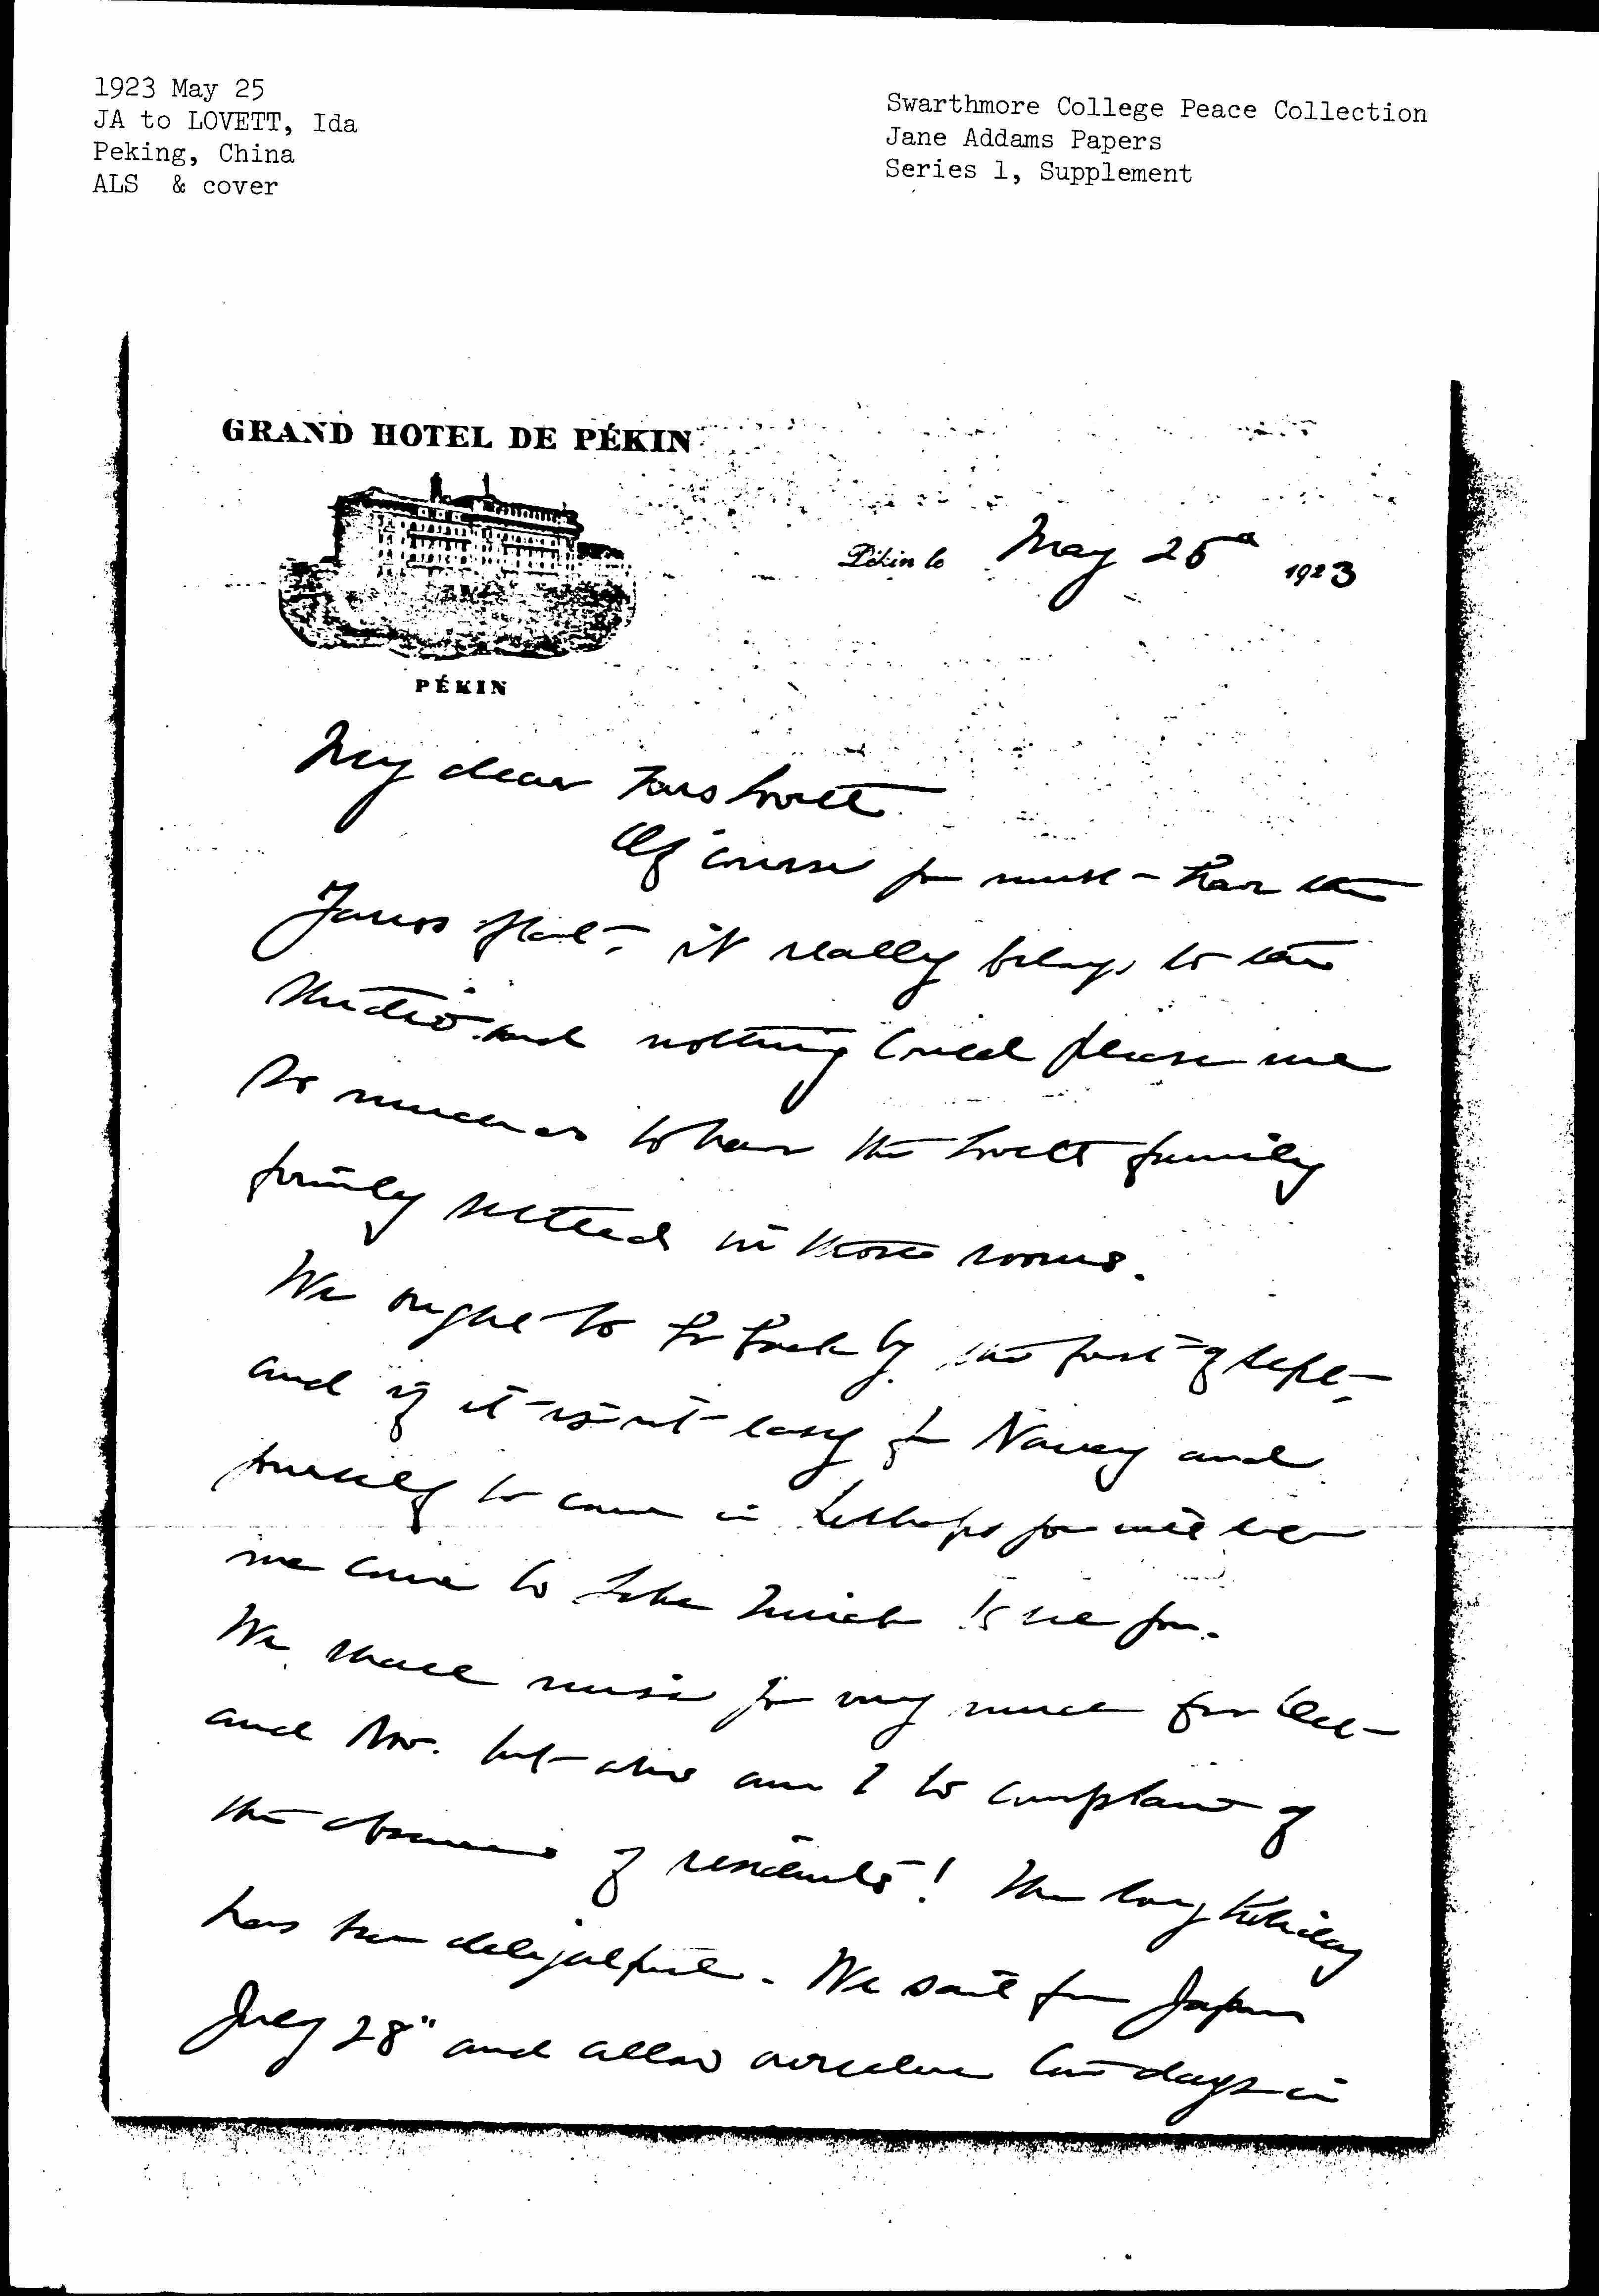 1923 May 25
JA to LOVETT, Ida
Peking, China
ALS & cover
Swarthmore College Peace Collection
Jane Addams Papers
Series 1, Supplement
GRAND HOTEL DE PÉKIN
Pékin le May 25" 1923
PÉKIN
My dear Mrs Lovett
Of course you must have the
flat, it really belongs to the
studio and nothing could please me
so much as to have the Lovett family
firmly settled in those rooms.
We ought to be back by the first of Sept
and if it isn't easy for Nancy and
yourself to come in perhaps you will let
me come to Lake Zurich to see you.
We shall miss you very much for Oct
and Nov. but who am I to complain of
the absence of residents! The long holiday
has been delightful. We sail for Japan
28" and allow ourselves days in